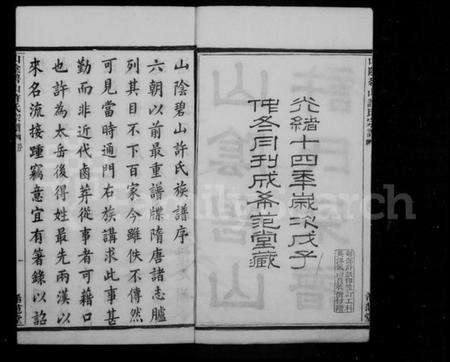 光緒十四年歲次戊子
仲冬月刊成希范堂藏
山陰碧山許氏族譜序
六朝以前最重譜牒隋唐諸志臚
列其目不下百家今雖佚不傳然
可見當時通門右族講求此事甚
勤而非近代鹵莽從事者可藉口
也許為太岳後得姓最先兩漢以
來名流接踵竊意宜有箸錄以詔